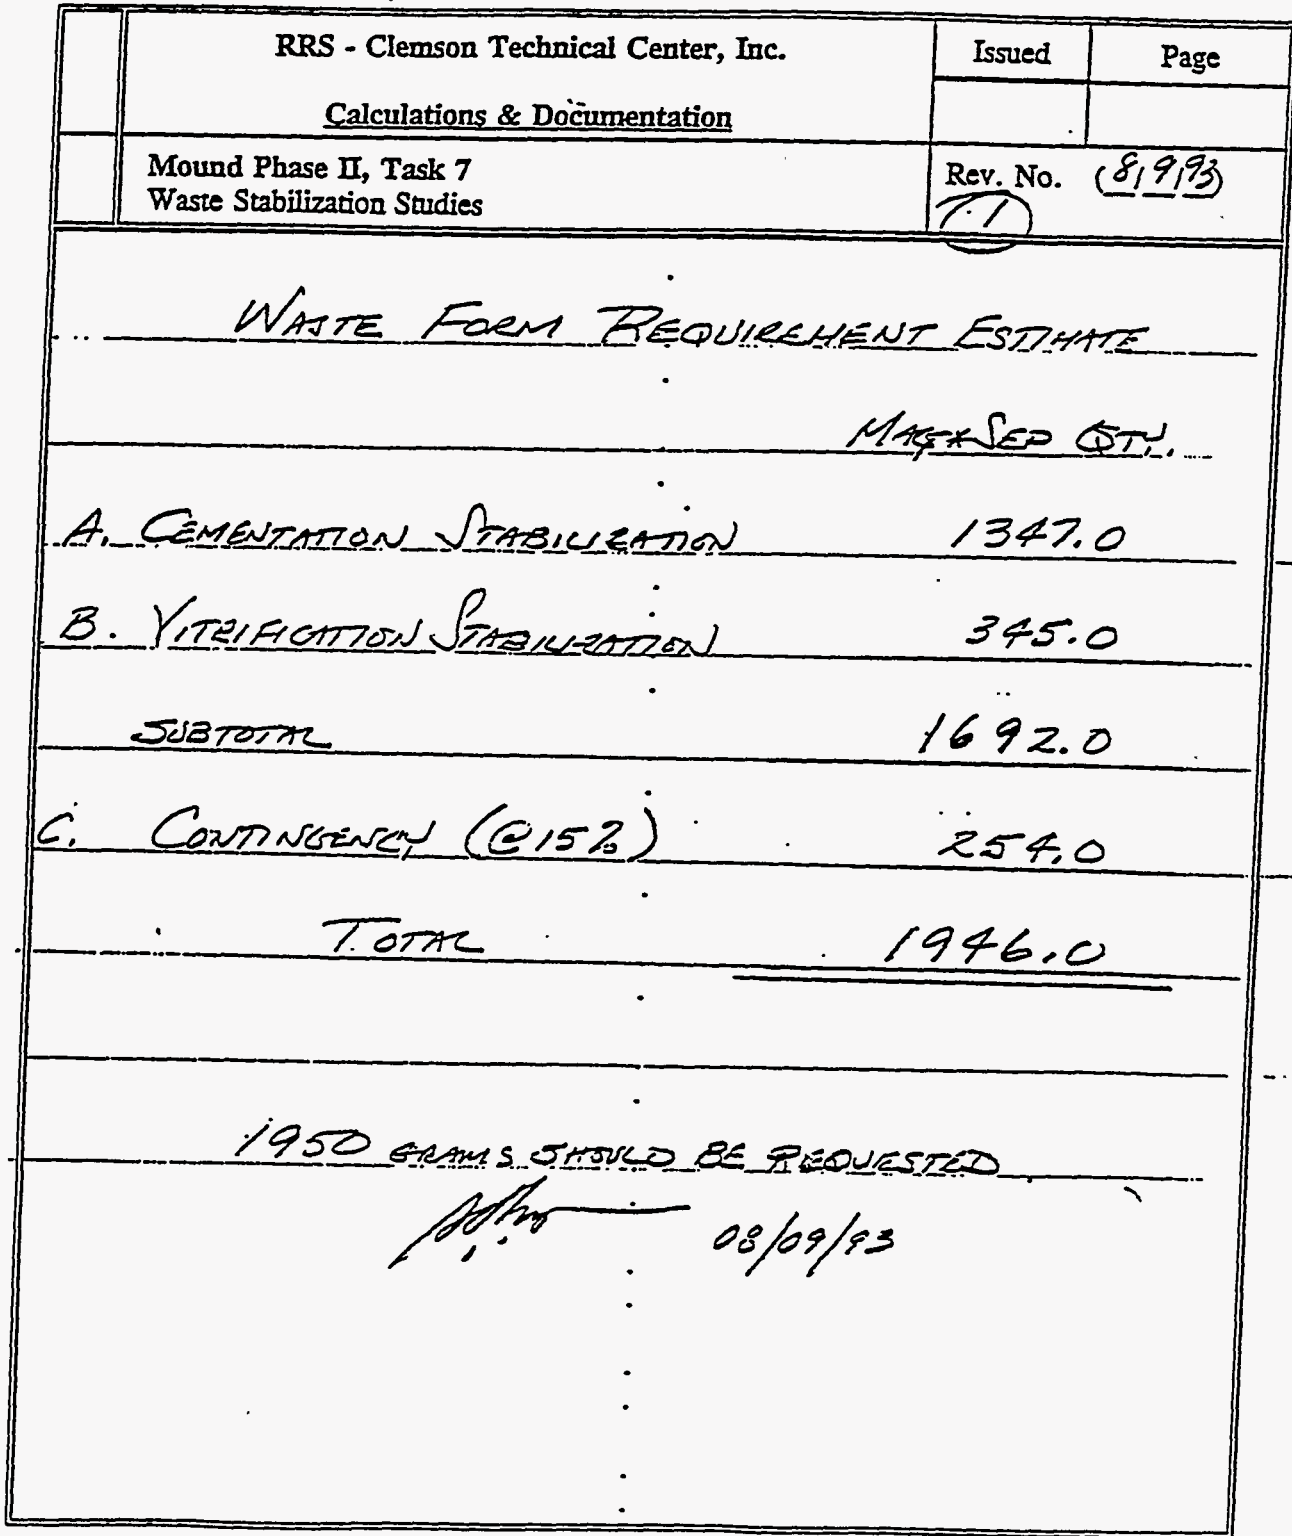 RRS - Clemson Technical Center, Inc.
Issued
Page
Calculations & Documentation
Mound Phase II, Task 7
Waste Stabilization Studies
Rev. No. (8/9/93)
1
WASTE FORM REQUIREMENT ESTIMATE
MAG*SEP QTY.
A. CEMENTATION STABILIZATION 1347.0
B. VITRIFICATION STABILIZATION 345.0
SUBTOTAL 1692.0
C. CONTINGENCY (@15%) 254.0
TOTAL 1946.0
1950 GRAMS SHOULD BE REQUESTED
08/09/93